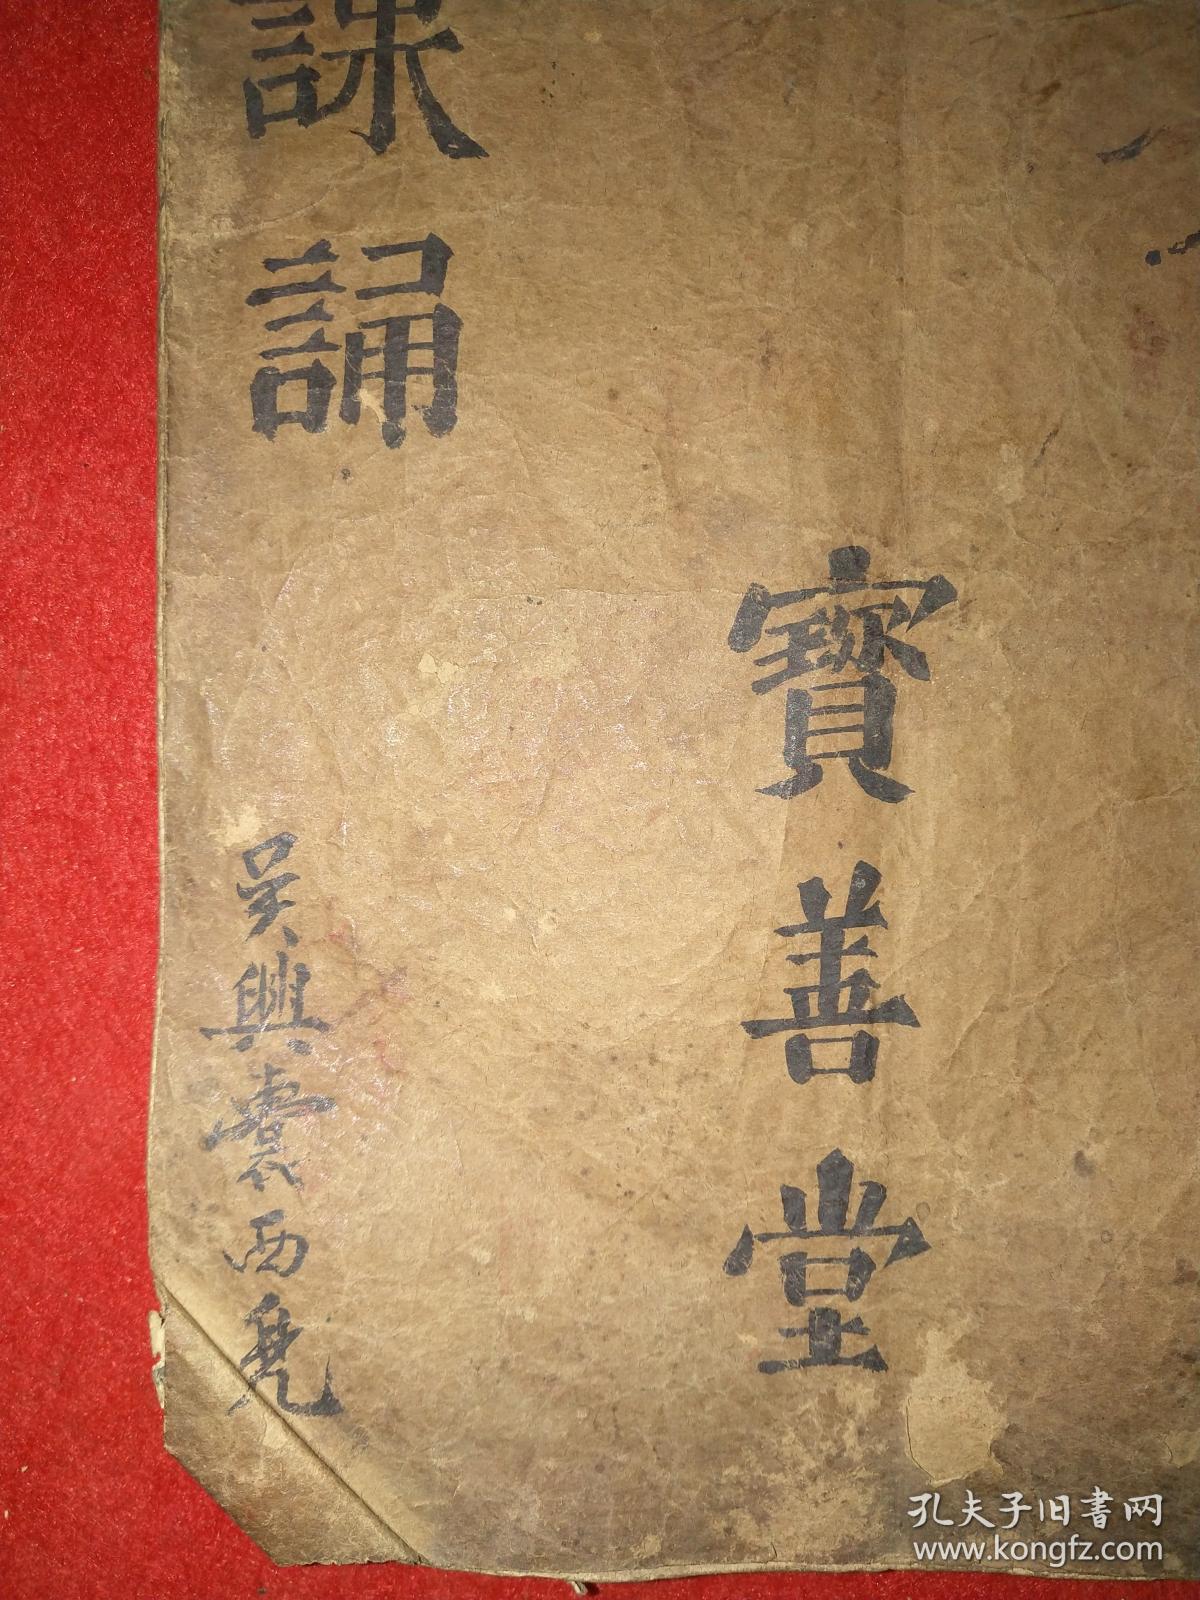 寶善堂
課誦
吳興囊西堯
孔夫子旧书网
www.kongfz.com